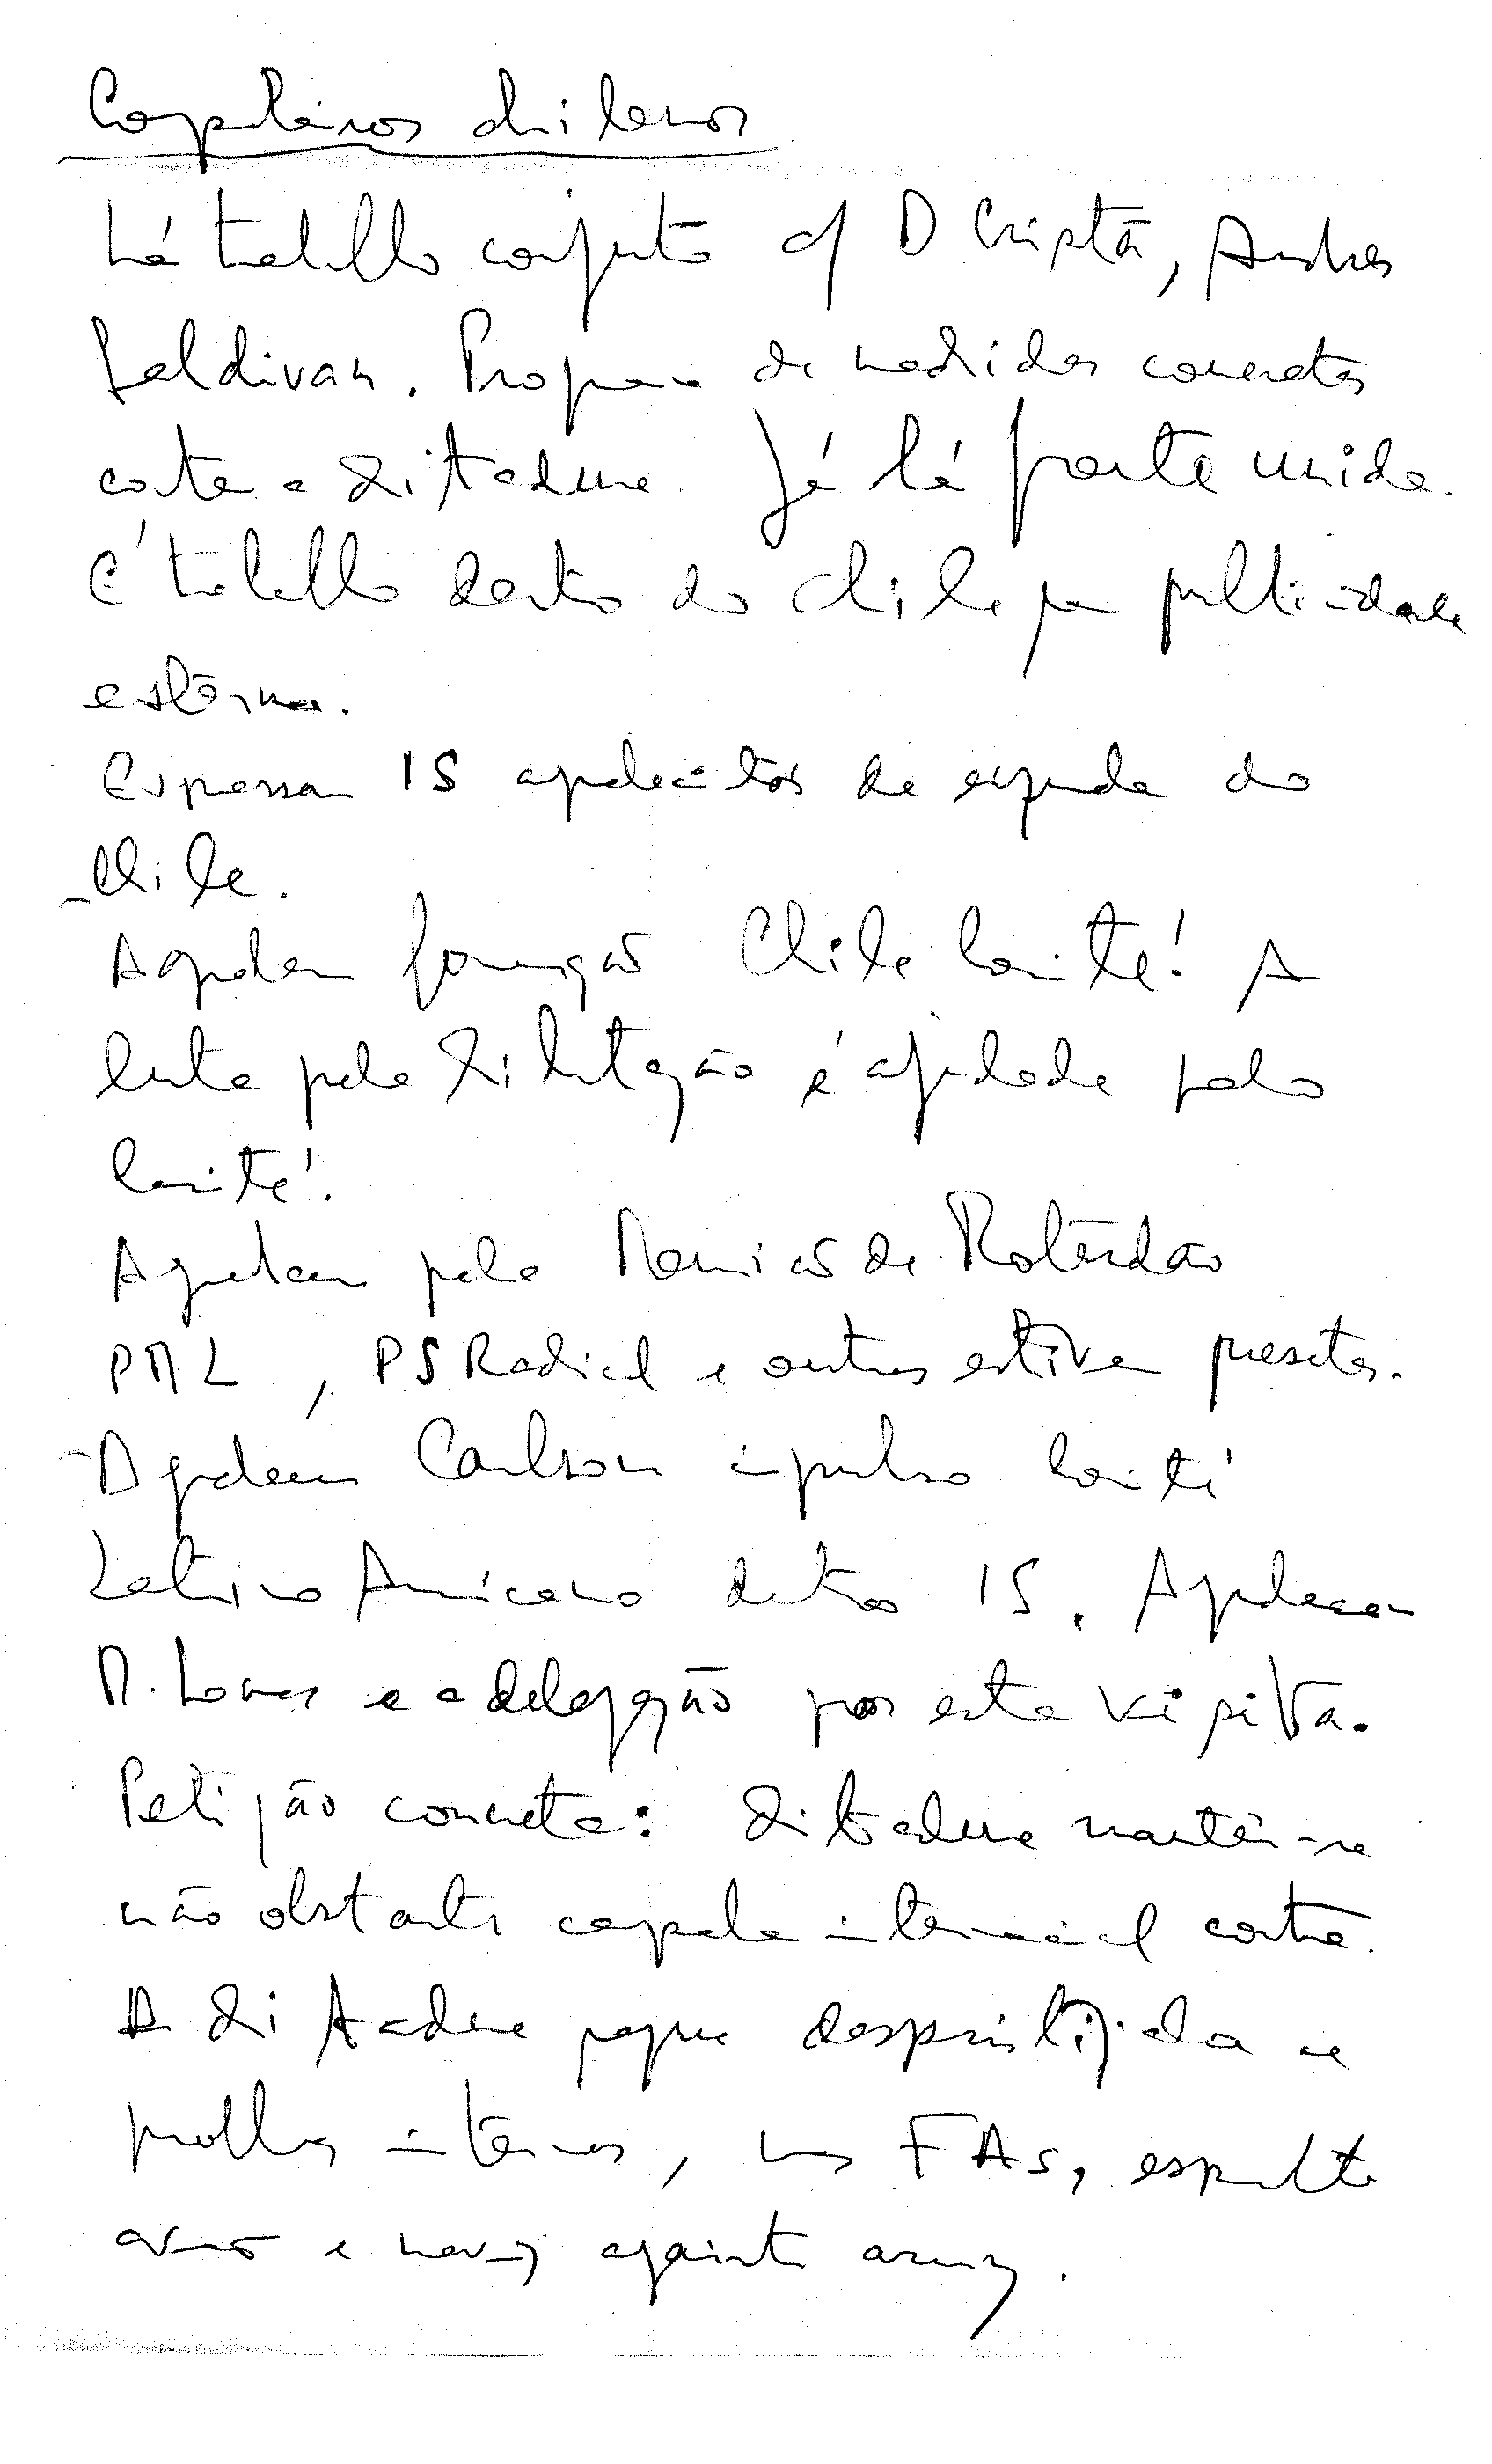 Compañeros chilenos
há trabalho conjunto c/ D Cristã, Andres
Zaldivar. Programa de medidas concretas
contra a ditadura. Já há frente unida.
É trabalho dentro do Chile para publicidade
externa.
Expressam IS agradecimentos de esquerda do
Chile.
Agradecem formação Chile Comité! A
luta pela libertação é ajudada pelo
Comité!
Agradecem pela Reunião de Roterdão
PPL, PS Radical e outros estiveram presentes.
Agradecem Carlsson impulso Comité
Latino Americano dentro IS. Agradecem
M. Soares e a delegação por esta visita.
Petição concreta: Ditadura mantém-se
não obstante campanha internacional contra.
A Ditadura porque desprestigiada e
problemas internos, nas FAs,
e against army.